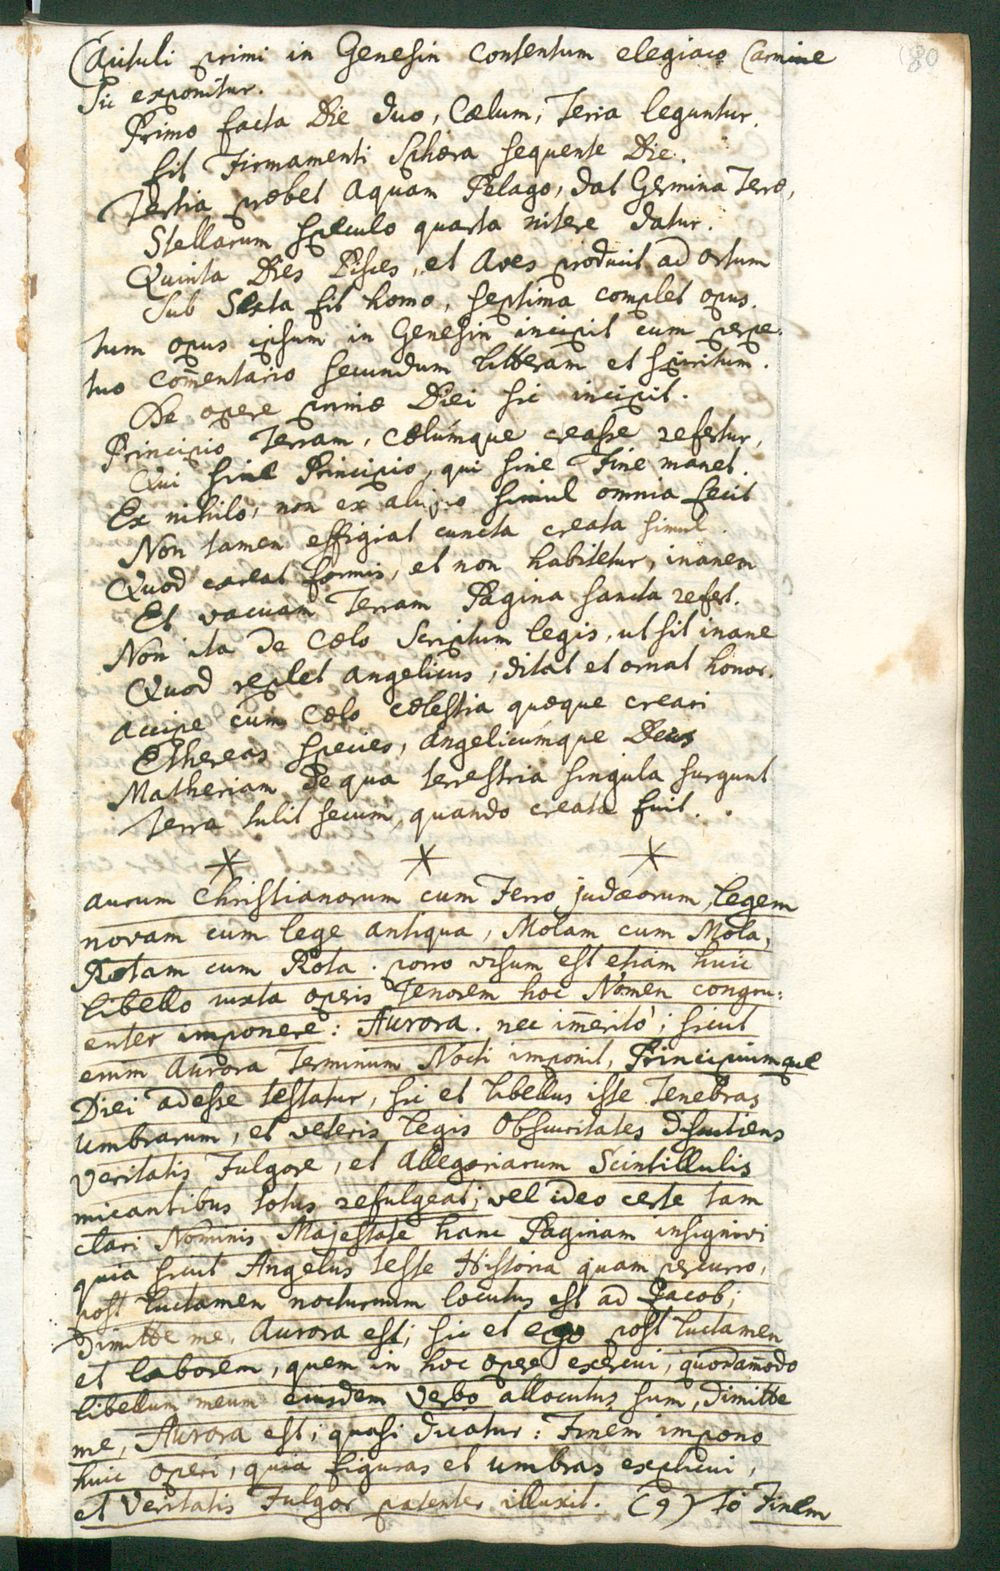 80
Capituli primi in Genesin contentum elegiaco Carmine
sic exponitur.
Primo facta Die duo, Cælum, Terra leguntur.
fit Firmamenti Sphæra sequente Die.
Tertia præbet Aquam Pelago, dat Germina Terræ,
Stellarum speculo quarta nitere datur.
Quinta Dies Pisces, et Aves producit ad ortum
Sub Sexta fit homo, septima complet opus.
tum opus ipsum in Genesin incipit cum perpe-
tuo com̄entario secundum litteram et spiritum.
De opere primæ Diei sic incipit.
Principio Terram, cælúmque creasse refertur,
Qui sine Principio, qui sine Fine manet.
Ex nihilo, non ex aliquo simul omnia fecit
Non tamen effigiat cuncta creata simul.
Quod careat formis, et non habitetur, inanem
Et vacuam Terram Pagina sancta refert.
Non ita de Cælo Scriptum legis, ut sit inane
Quod replet angelicus, ditat et ornat honor.
accipe cum Cælo cælestia quæque creari
Ethereas species, Angelicúmque Decus
Matheriam de qua terrestria singula surgunt
Terra tulit secum, quando creata fuit.
aurum Christianorum cum Ferro judæorum, legem
novam cum lege antiqua, Molam cum Mola,
Rotam cum Rota. porro visum est etiam huic
libello iuxta operis Tenorem hoc Nomen congru-
enter imponere: Aurora. nec im̄eritò; sicut
enim Aurora Terminum Nocti imponit, Principiumque
Diei adesse testatur, sic et libellus iste Tenebras
Umbrarum, et veteris legis Obscuritates discutiens
veritatis Fulgore, et Allegoriarum Scintillulis
micantibus totus refulgeat; vel ideo certe tam
clari Nominis Majestate hanc Paginam insignivi
quia sicut Angelus teste Historia quam percurro,
post luctamen nocturnum locutus est ad Jacob;
Dimitte me, Aurora est; sic et ego post luctamen
et laborem, quem in hoc opere exercui, quodam̄odo
libellum meum eiusdem verbo allocutus sum, Dimitte
me, Aurora est; quasi dicatur: Finem impono
huic operi, quia figuras et umbras explicui,
et Veritatis Fulgor patenter illuxit. (9) Fo Finem